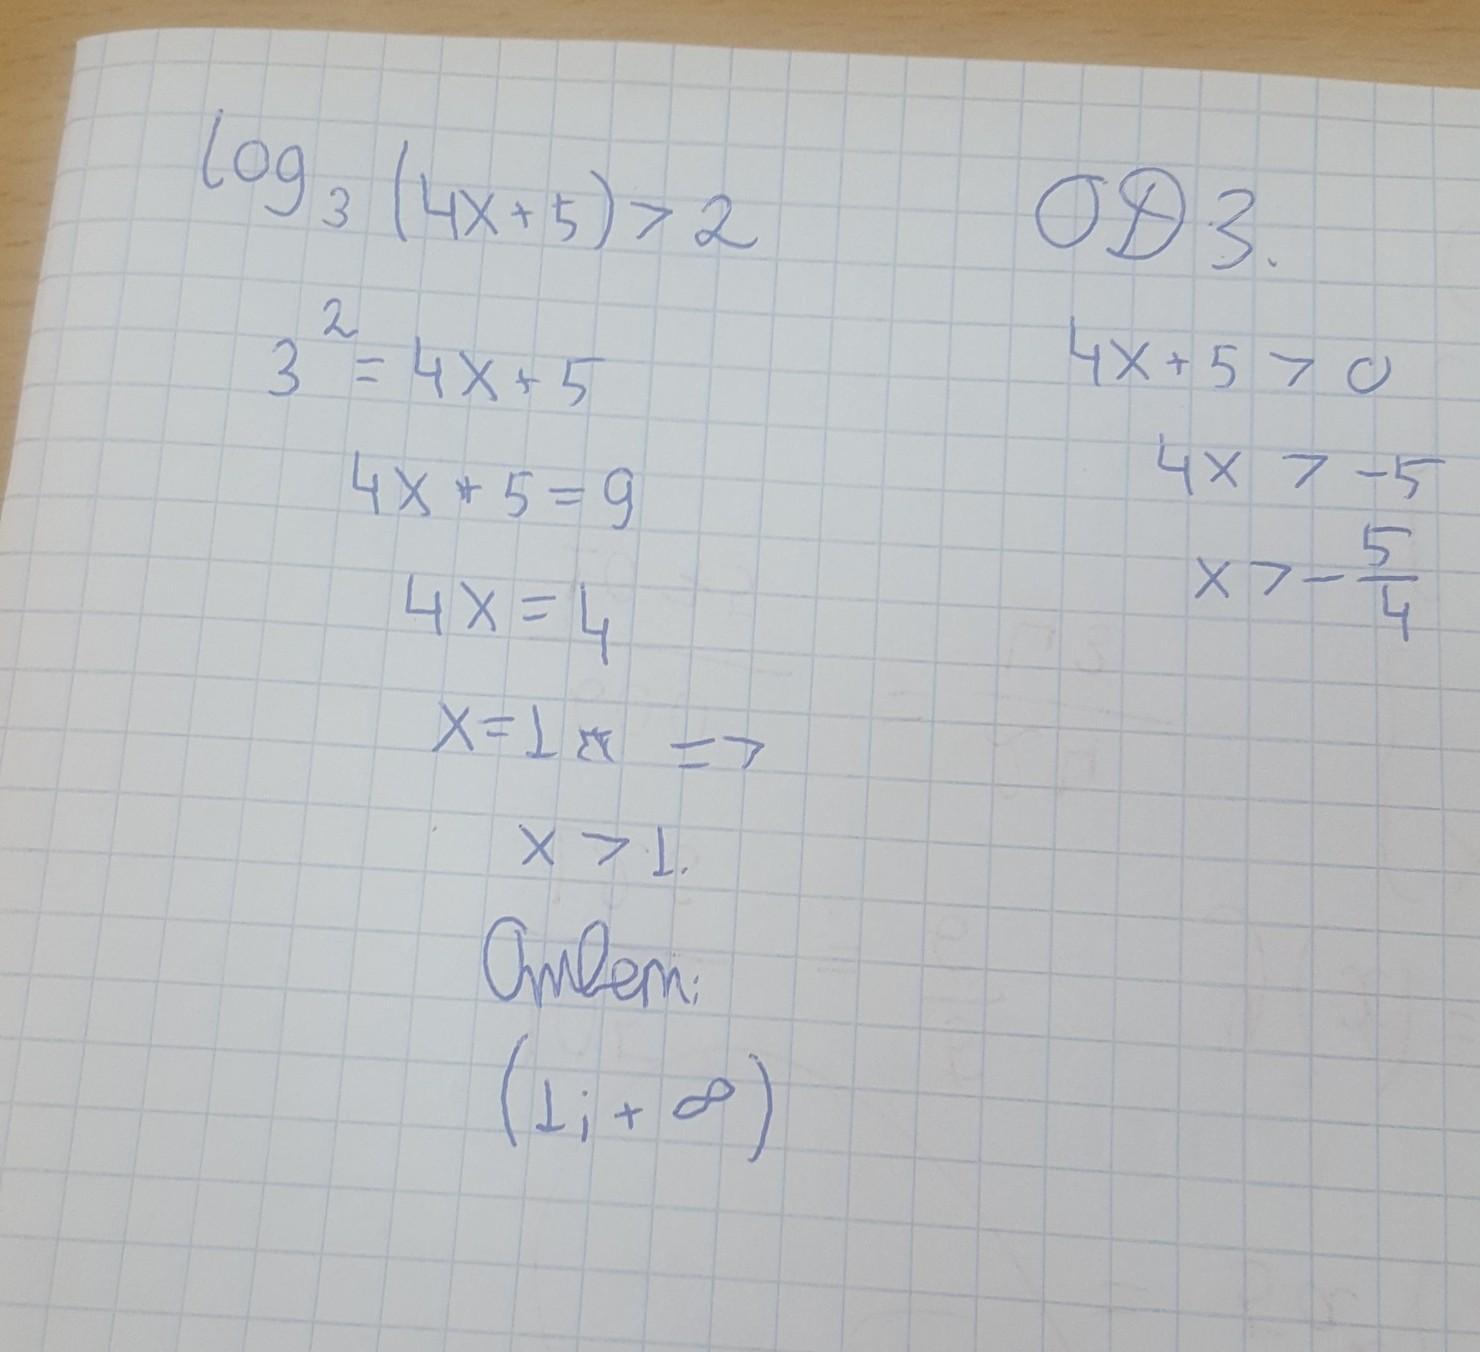 log₃ (4x+5) > 2
3² = 4x+5
4x+5=9
4x=4
x=1 =>
x > 1.
Ответ:
(1; + ∞)
ОДЗ.
4x+5 > 0
4x > -5
x > - 5/4